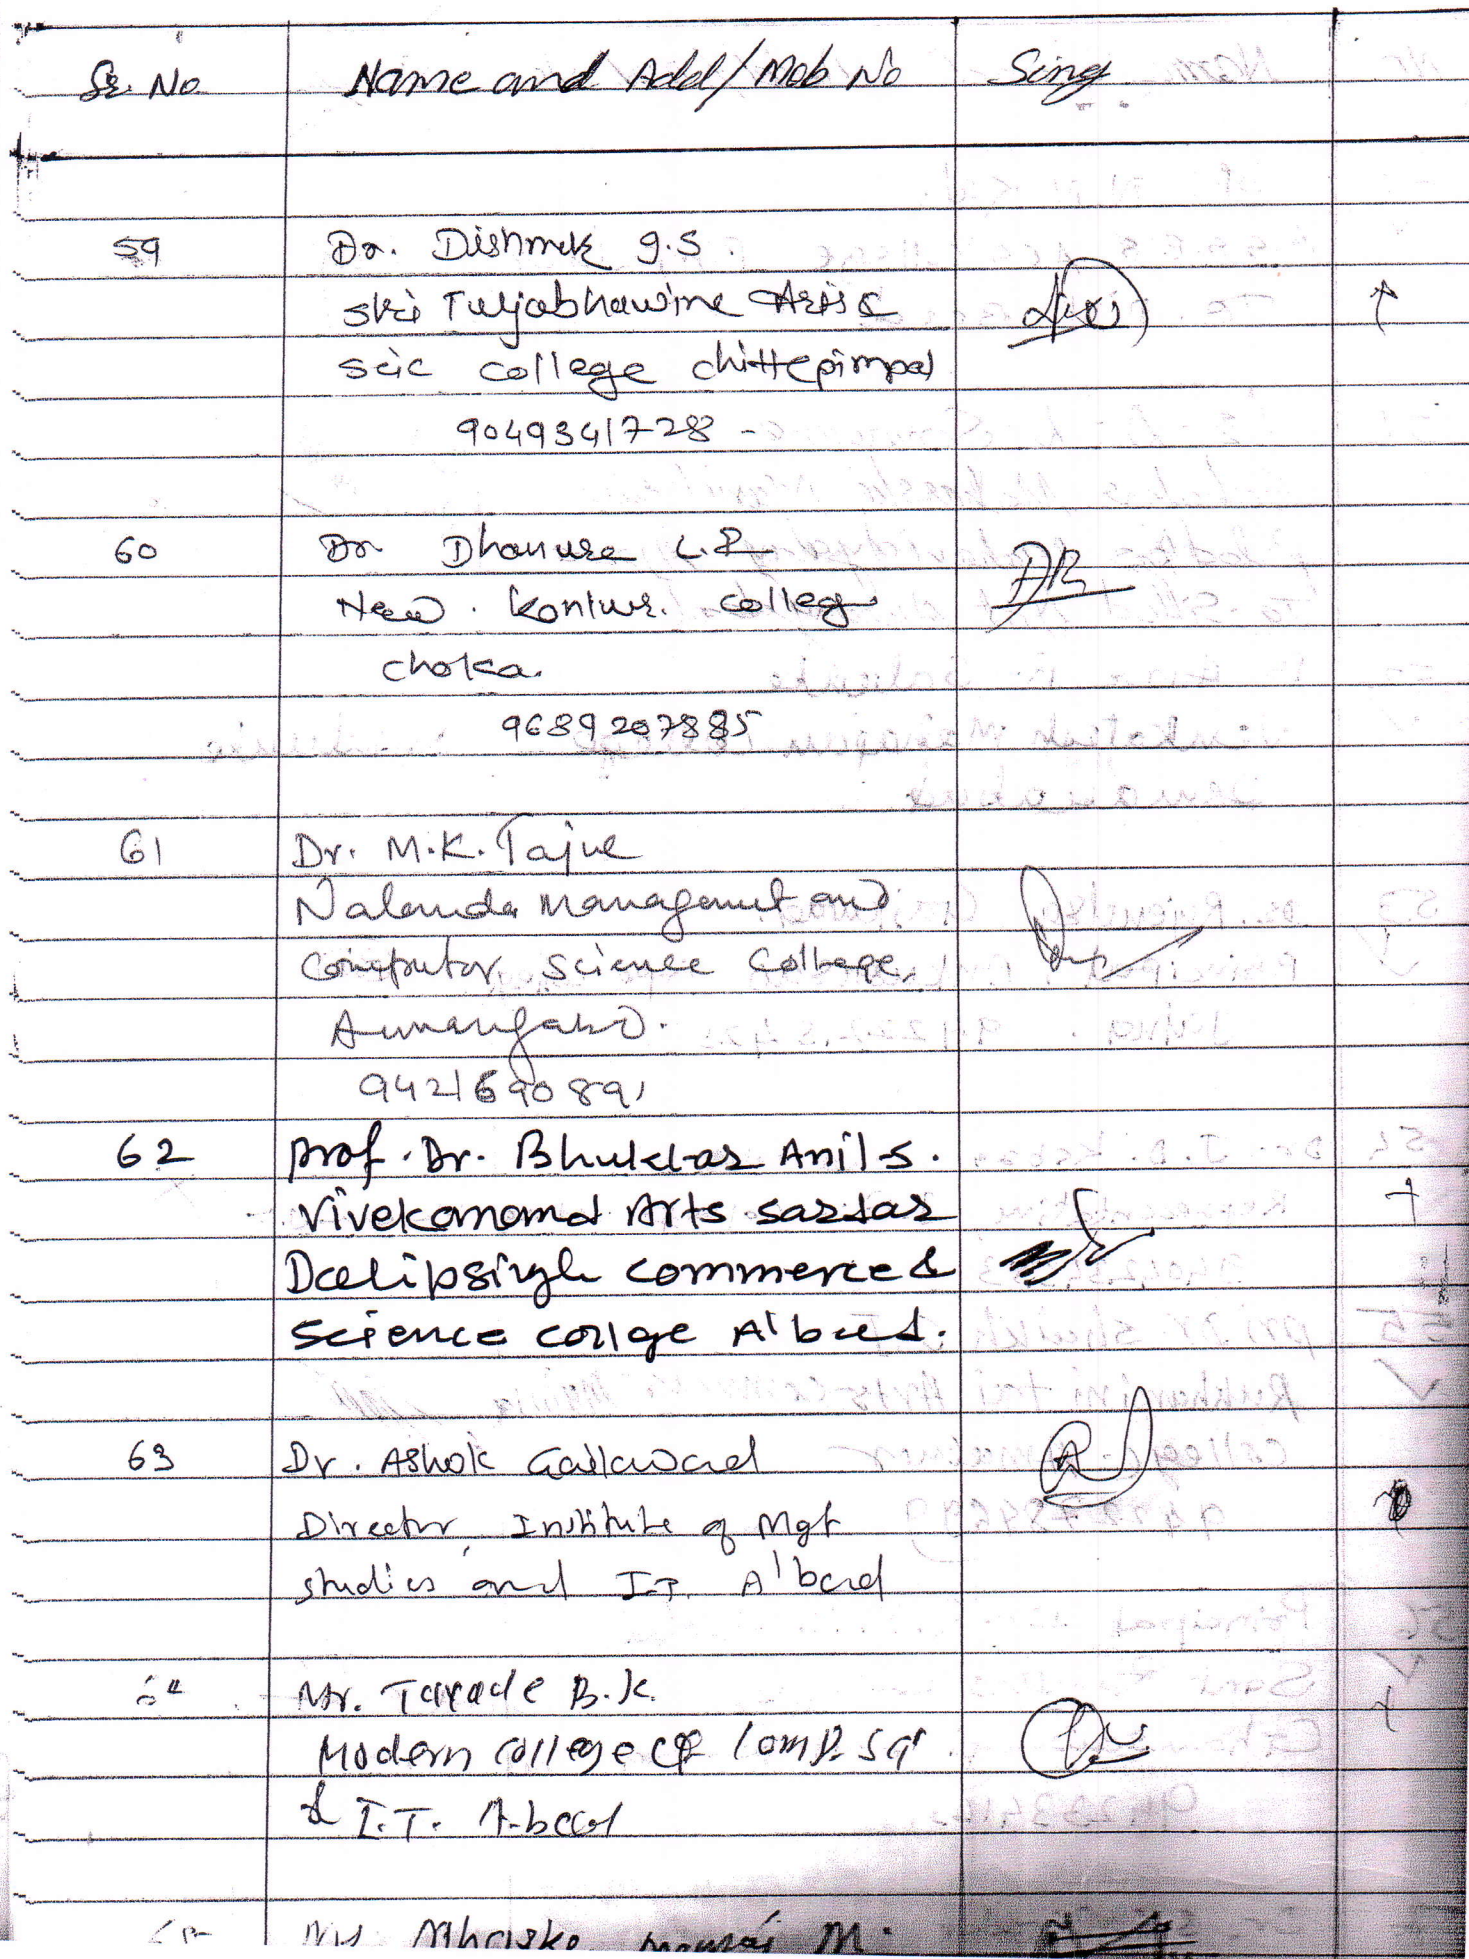 Sr. No. Name and Add/Mob No Sing
59 Dr. Dishmuk g.S.
Shri Tuljabhawine Arts &
Scic college chittepimpal
9049341728 -
60 Dr Dhanure L.P
New . College
choka.
9689207885
61 Dr. M.K. Tajne
Nalanda Management and
Computer Science College,
Aurangabad.
9421690891
62 Prof. Dr. Bhuktar Anil S.
Vivekanand Arts Sardar
Dalipsingh commerce &
Science collge A'bad.
63 Dr. Ashok Gaikwad
Director, Institute of Mgt
studies and I.T. A'bad
64 Mr. Tayade B.K.
Modern college of Comp. Sci
& I.T. A.bad
Mhaske M.